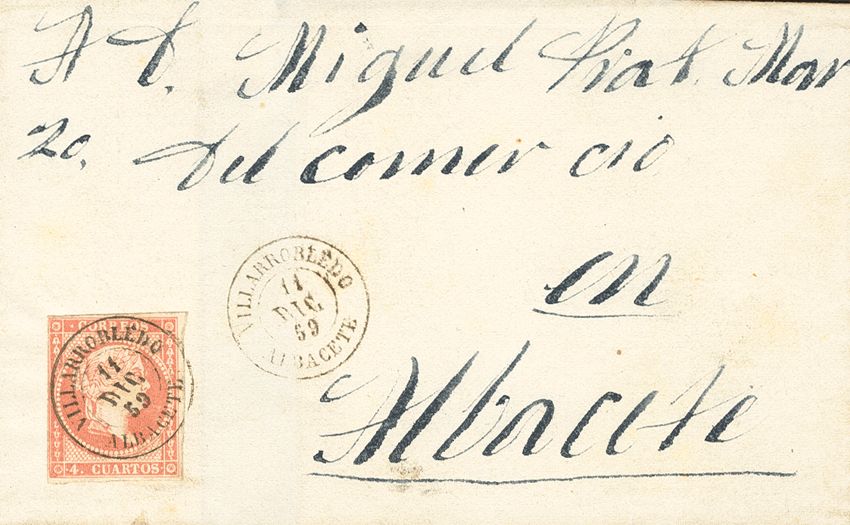 A D. Miguel Piat. Mar
zo. Del comercio
en
Albacete
VILLARROBLEDO
11
DIC
59
ALBACETE
CORREOS
VILLARROBLEDO
11
DIC
59
ALBACETE
4. CUARTOS